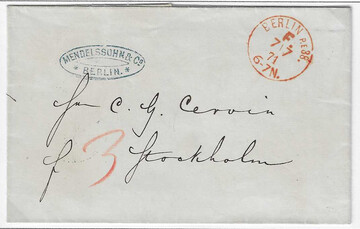 MENDELSSOHN & Co
* BERLIN. *
BERLIN P.E. 8.
F
7/7
71
6-7N.
C. G. Cervin
3
Stockholm